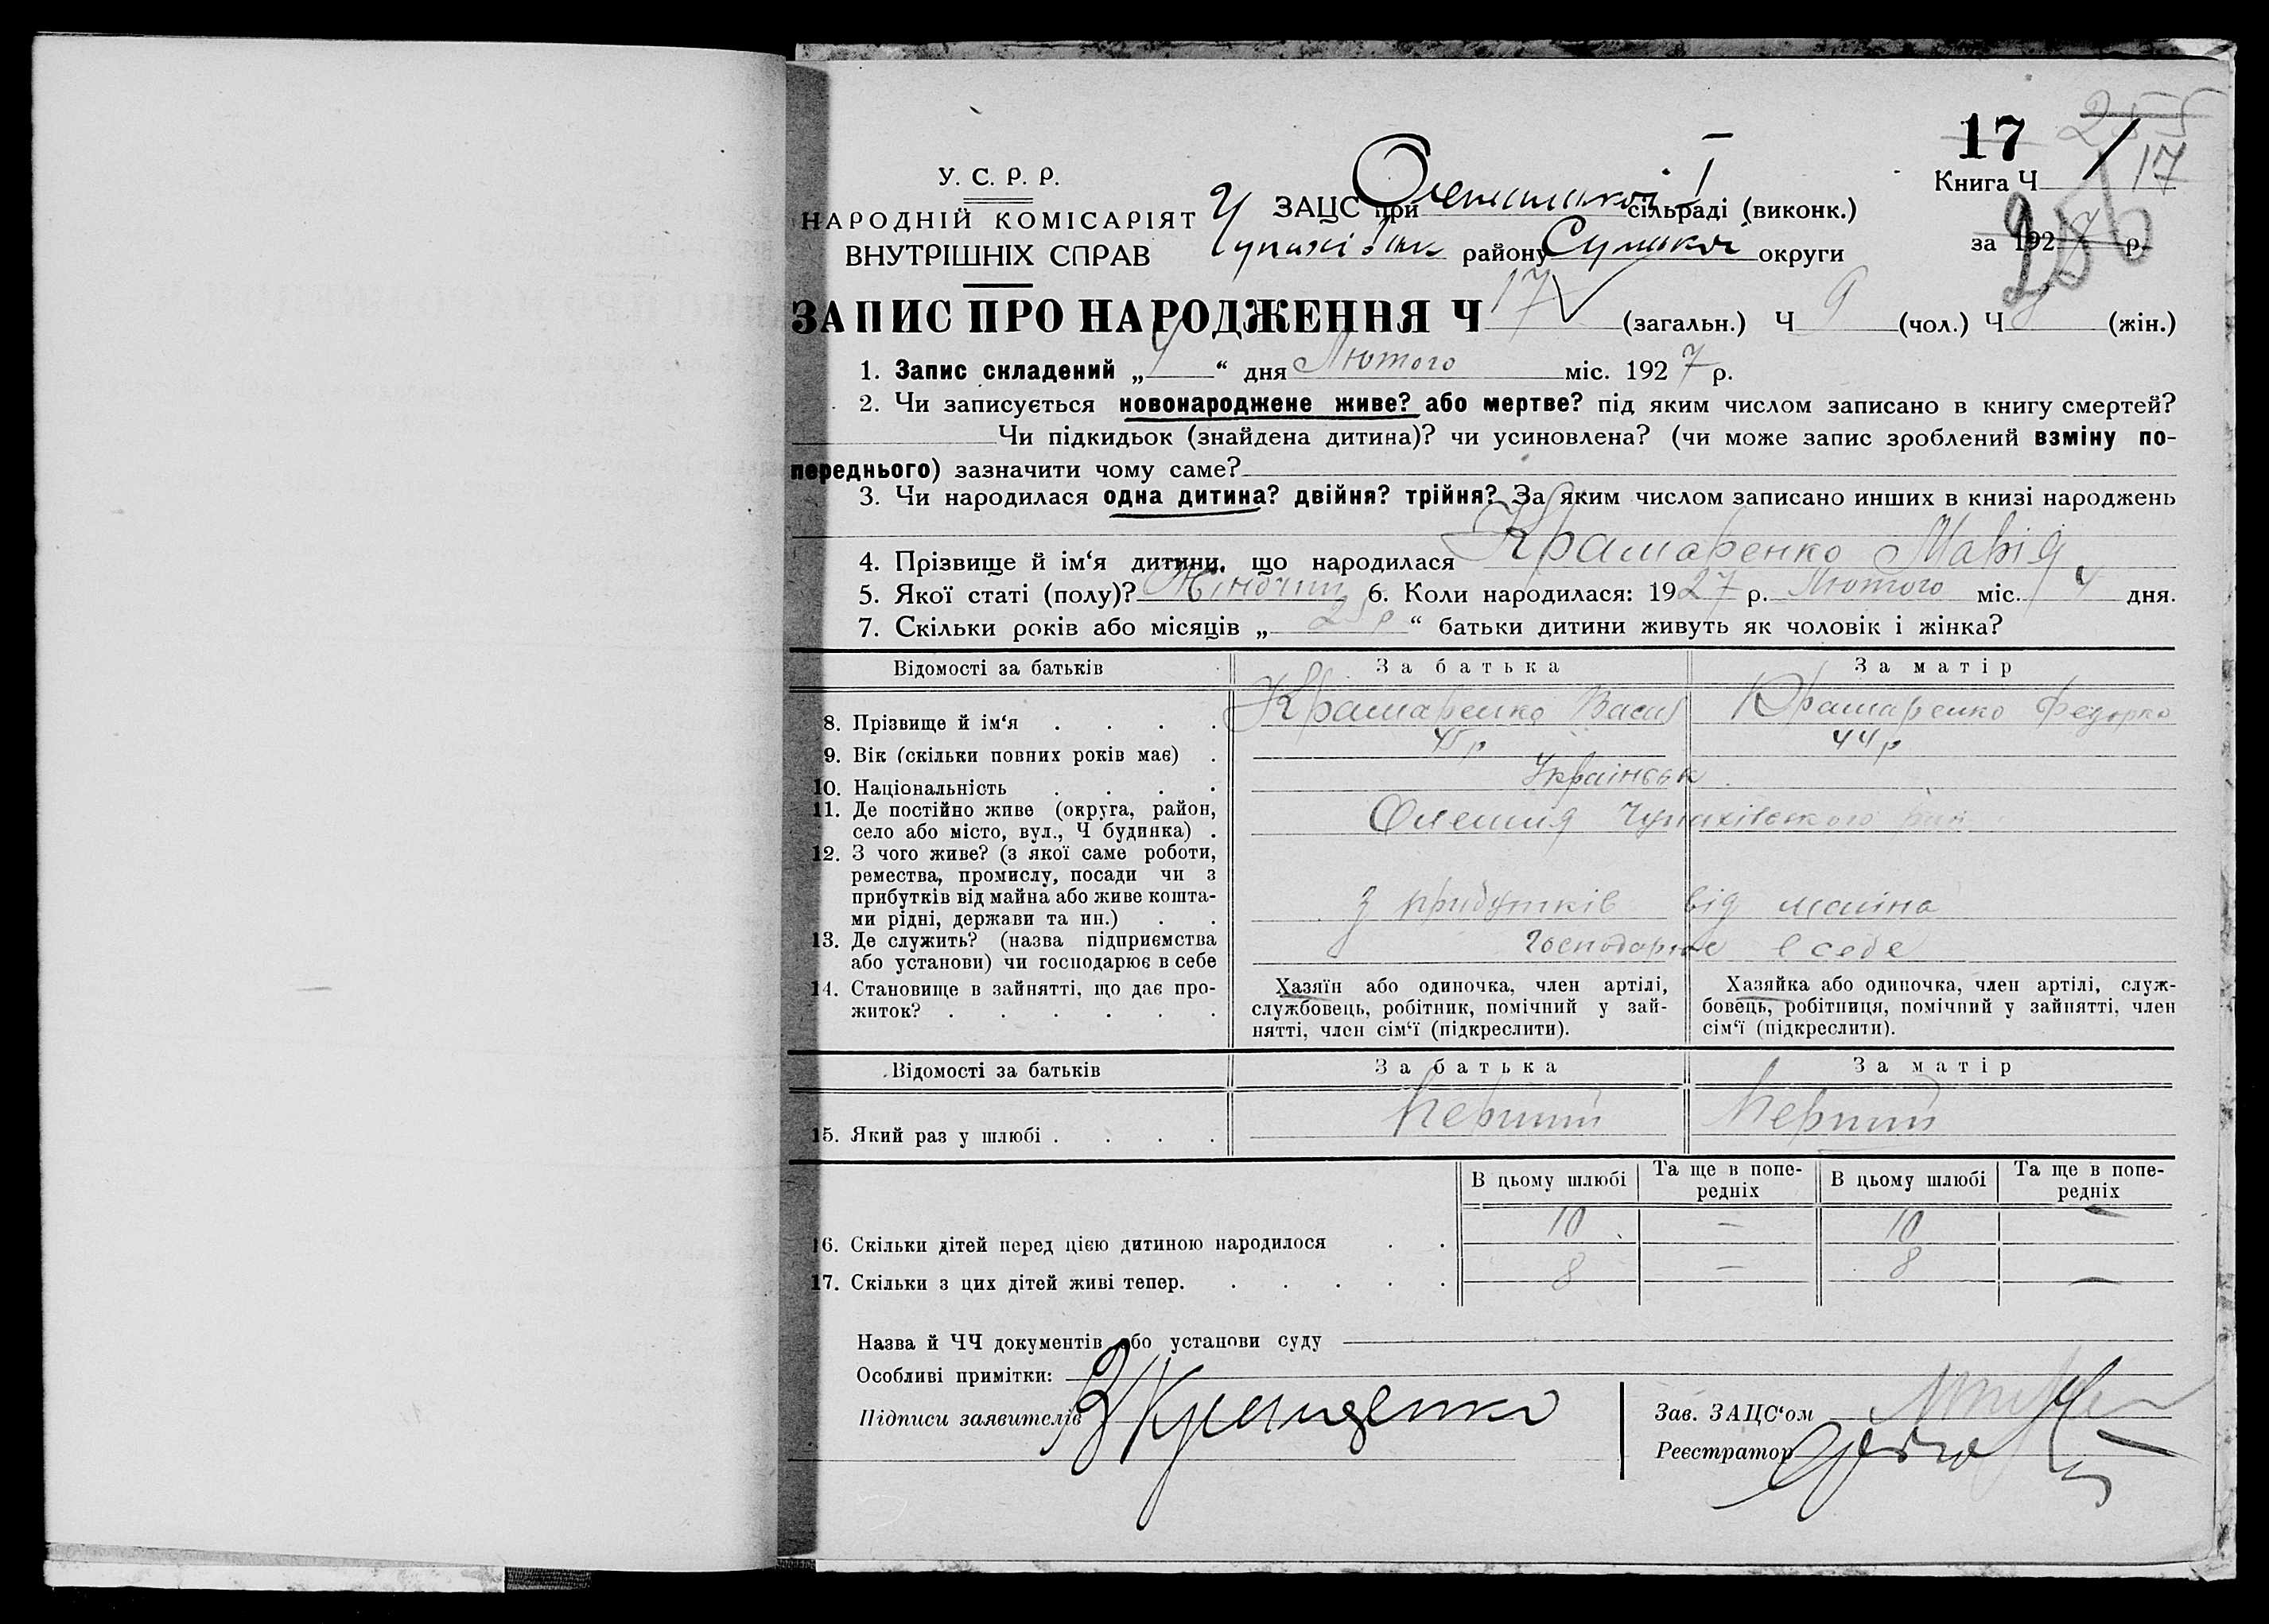 17 255
Книга Ч 1/17
за 1927 р. 256
У. С. Р. Р.
НАРОДНІЙ КОМІСАРІЯТ
ВНУТРІШНІХ СПРАВ
ЗАЦС при Олешнської I сільраді (виконк.)
Чупахівськ району Сумської округи
ЗАПИС ПРО НАРОДЖЕННЯ Ч 17 (загальн.) Ч 9 (чол.) Ч 8 (жін.)
1. Запис складений „ 4 “ дня Лютого міс. 1927 р.
2. Чи записується новонароджене живе? або мертве? під яким числом записано в книгу смертей?
Чи підкидьок (знайдена дитина)? чи усиновлена? (чи може запис зроблений взміну по-
переднього) зазначити чому саме?
3. Чи народилася одна дитина? двійня? трійня? За яким числом записано инших в книзі народжень
4. Прізвище й ім‘я дитини, що народилася Крамаренко Марія
5. Якої статі (полу)? Жіночий 6. Коли народилася: 1927 р. Лютого міс. 4 дня.
7. Скільки років або місяців „ 25 р “ батьки дитини живуть як чоловік і жінка?
Відомості за батьків За батька За матір
8. Прізвище й ім‘я . . . . Крамаренко Васил Крамаренко Федорка
9. Вік (скільки повних років має) . 45 р 44 р
10. Національність . . . . Українськ
11. Де постійно живе (округа, район,
село або місто, вул., Ч будинка) . Олешня Чупахівського рай
12. З чого живе? (з якої саме роботи,
ремества, промислу, посади чи з
прибутків від майна або живе кошта-
ми рідні, держави та ин.) . . з прибутків від маина
13. Де служить? (назва підприємства
або установи) чи господарює в себе господарює в себе
14. Становище в зайнятті, що дає про-
житок? . . . . . .
Хазяїн або одиночка, член артілі,
службовець, робітник, помічний у зай-
нятті, член сім‘ї (підкреслити).
Хазяйка або одиночка, член артілі, служ-
бовець, робітниця, помічний у зайнятті, член
сім‘ї (підкреслити).
Відомості за батьків За батька За матір
15. Який раз у шлюбі . . . . Перший Перший
В цьому шлюбі Та ще в попе-
редніх В цьому шлюбі Та ще в попе-
редніх
16. Скільки дітей перед цією дитиною народилося . . 10 — 10 —
17. Скільки з цих дітей живі тепер. . . . . . 8 — 8 —
Назва й ЧЧ документів або установи суду
Особливі примітки:
Підписи заявителів
Зав. ЗАЦС‘ом
Реєстратор